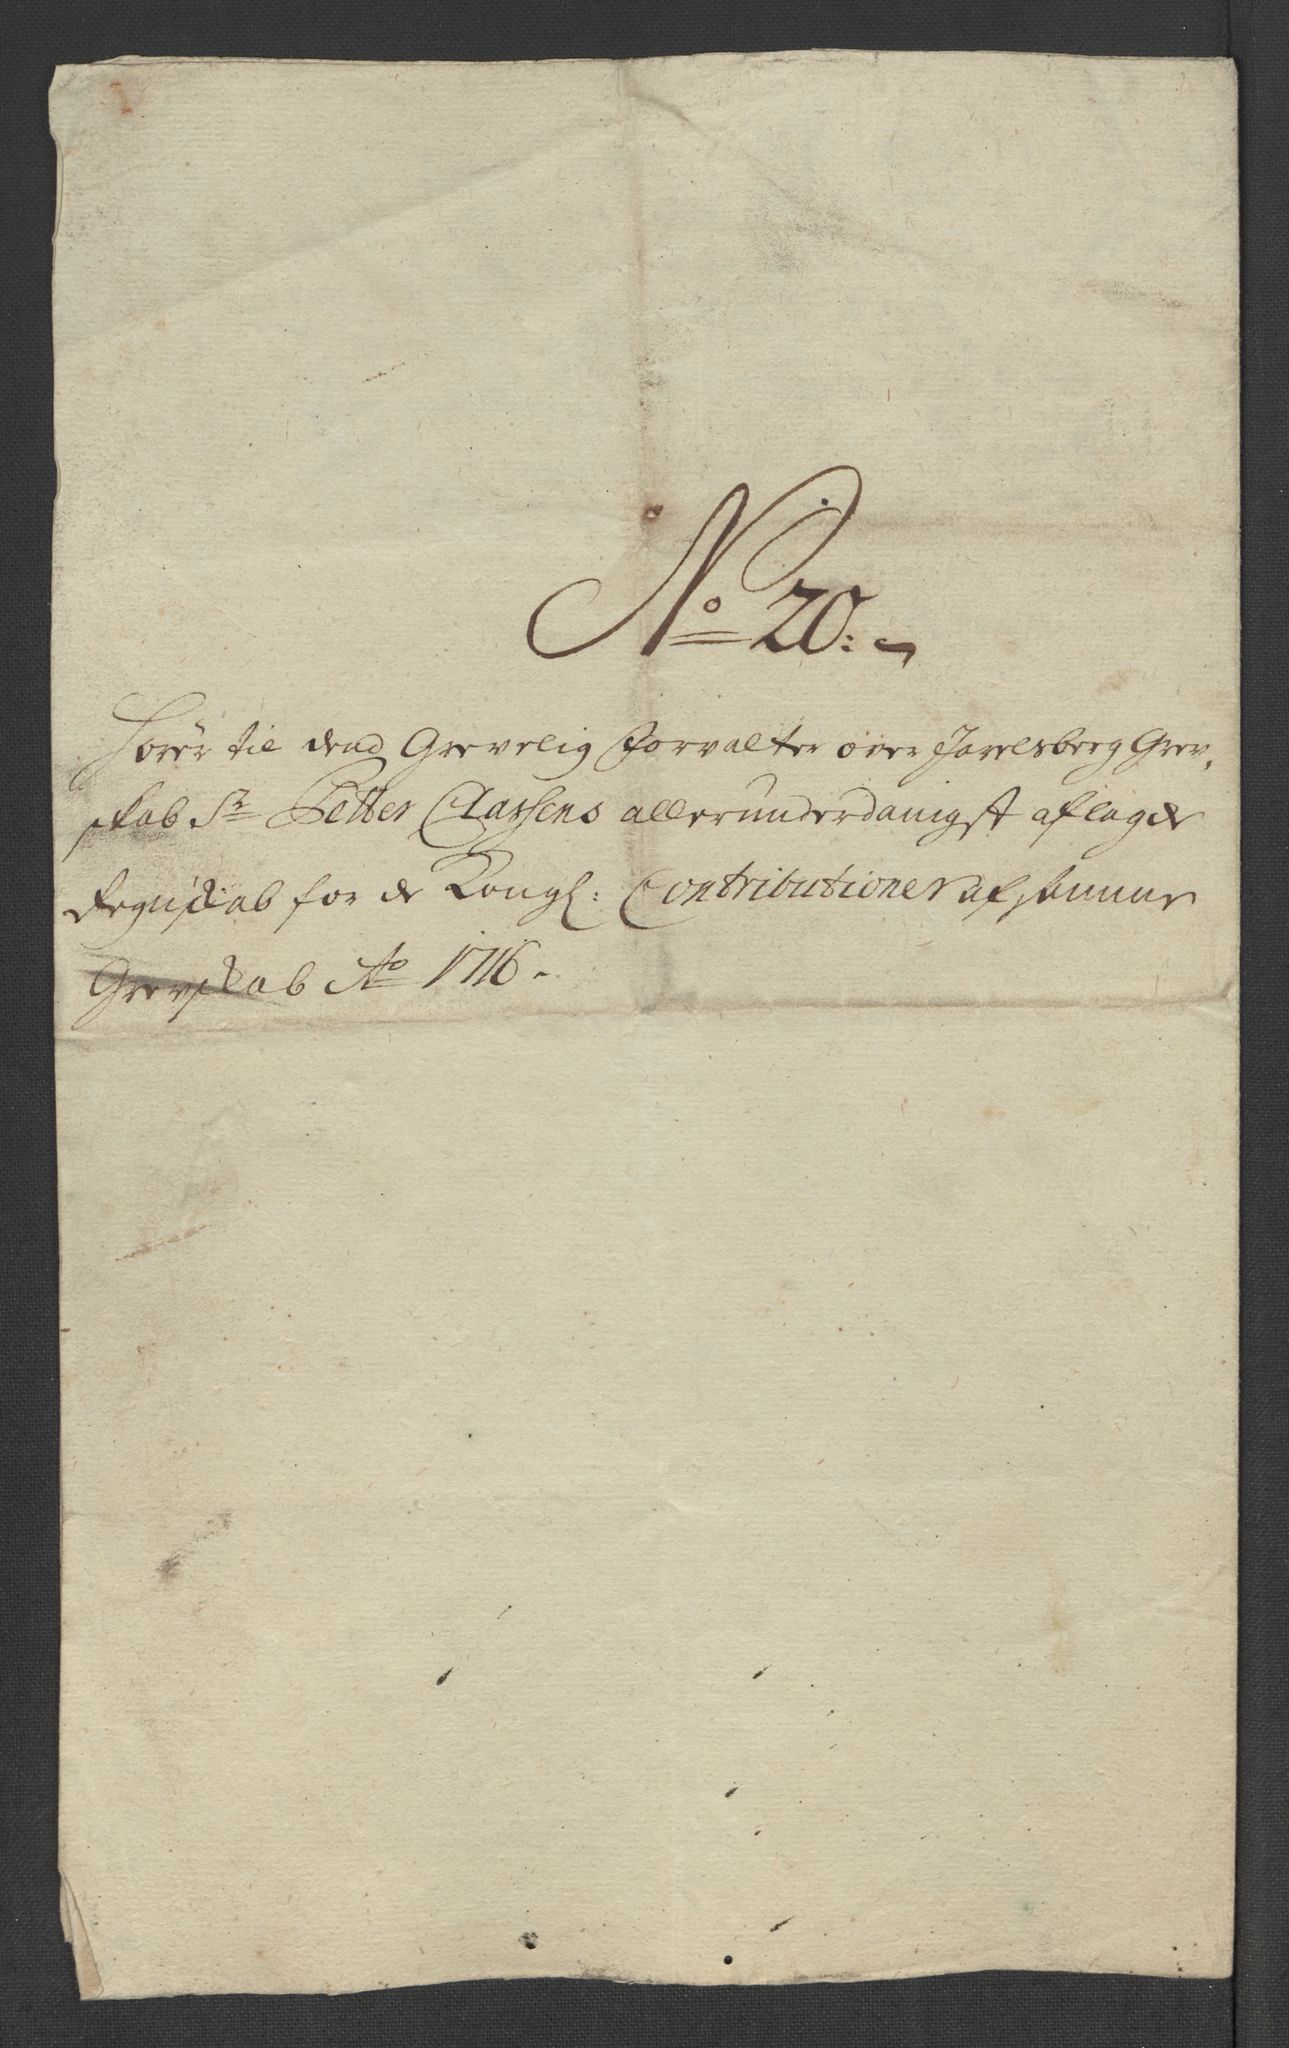 No 20.
Hører til dend Grevelig Forvalter over Jarlsberg Grev,
skab Sr Petter Classens allerunderdanigst aflagde
Regnskab for de Kongl: Contributioner af samme
Grevskab Ao 1716.